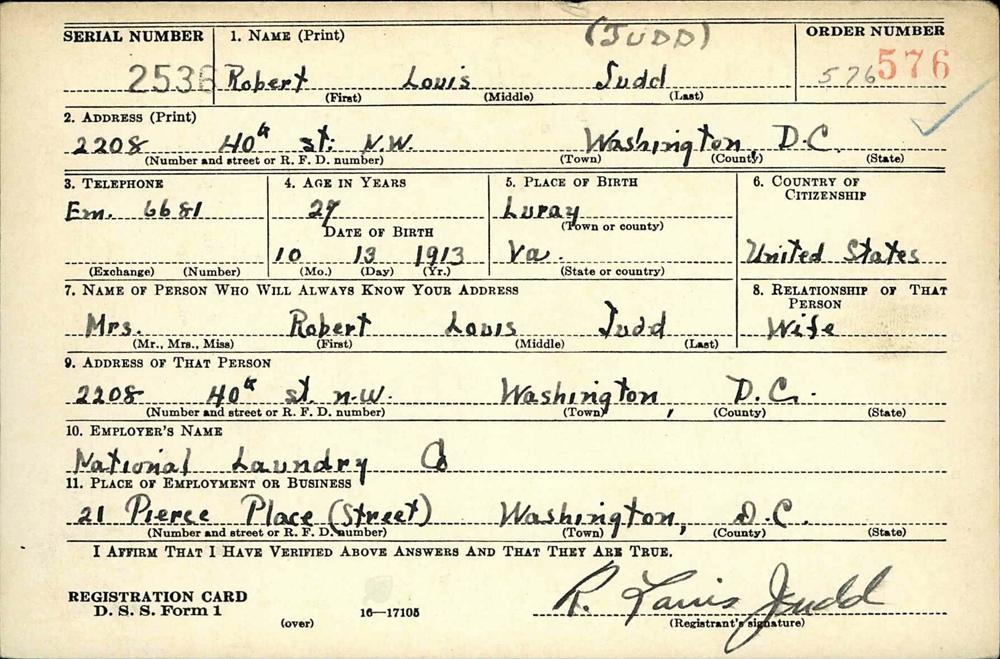 SERIAL NUMBER 1. NAME (Print) (JUDD) ORDER NUMBER
2536 Robert Louis Judd 576 576
(First) (Middle) (Last)
2. ADDRESS (Print)
2208 40th St. N.W. Washington, D.C.
(Number and street or R. F. D. number) (Town) (County) (State)
3. TELEPHONE 4. AGE IN YEARS 5. PLACE OF BIRTH 6. COUNTRY OF CITIZENSHIP
Em. 6681 27 Luray
DATE OF BIRTH (Town or county)
10 13 1913 Va. United States
(Exchange) (Number) (Mo.) (Day) (Yr.) (State or country)
7. NAME OF PERSON WHO WILL ALWAYS KNOW YOUR ADDRESS 8. RELATIONSHIP OF THAT PERSON
Mrs. Robert Louis Judd Wife
(Mr., Mrs., Miss) (First) (Middle) (Last)
9. ADDRESS OF THAT PERSON
2208 40th St. N.W. Washington, D.C.
(Number and street or R. F. D. number) (Town) (County) (State)
10. EMPLOYER'S NAME
National Laundry Co
11. PLACE OF EMPLOYMENT OR BUSINESS
21 Pierce Place (Street) Washington, D.C.
(Number and street or R. F. D. number) (Town) (County) (State)
I AFFIRM THAT I HAVE VERIFIED ABOVE ANSWERS AND THAT THEY ARE TRUE.
REGISTRATION CARD
D. S. S. Form 1 16—17105 R. Louis Judd
(over) (Registrant's signature)